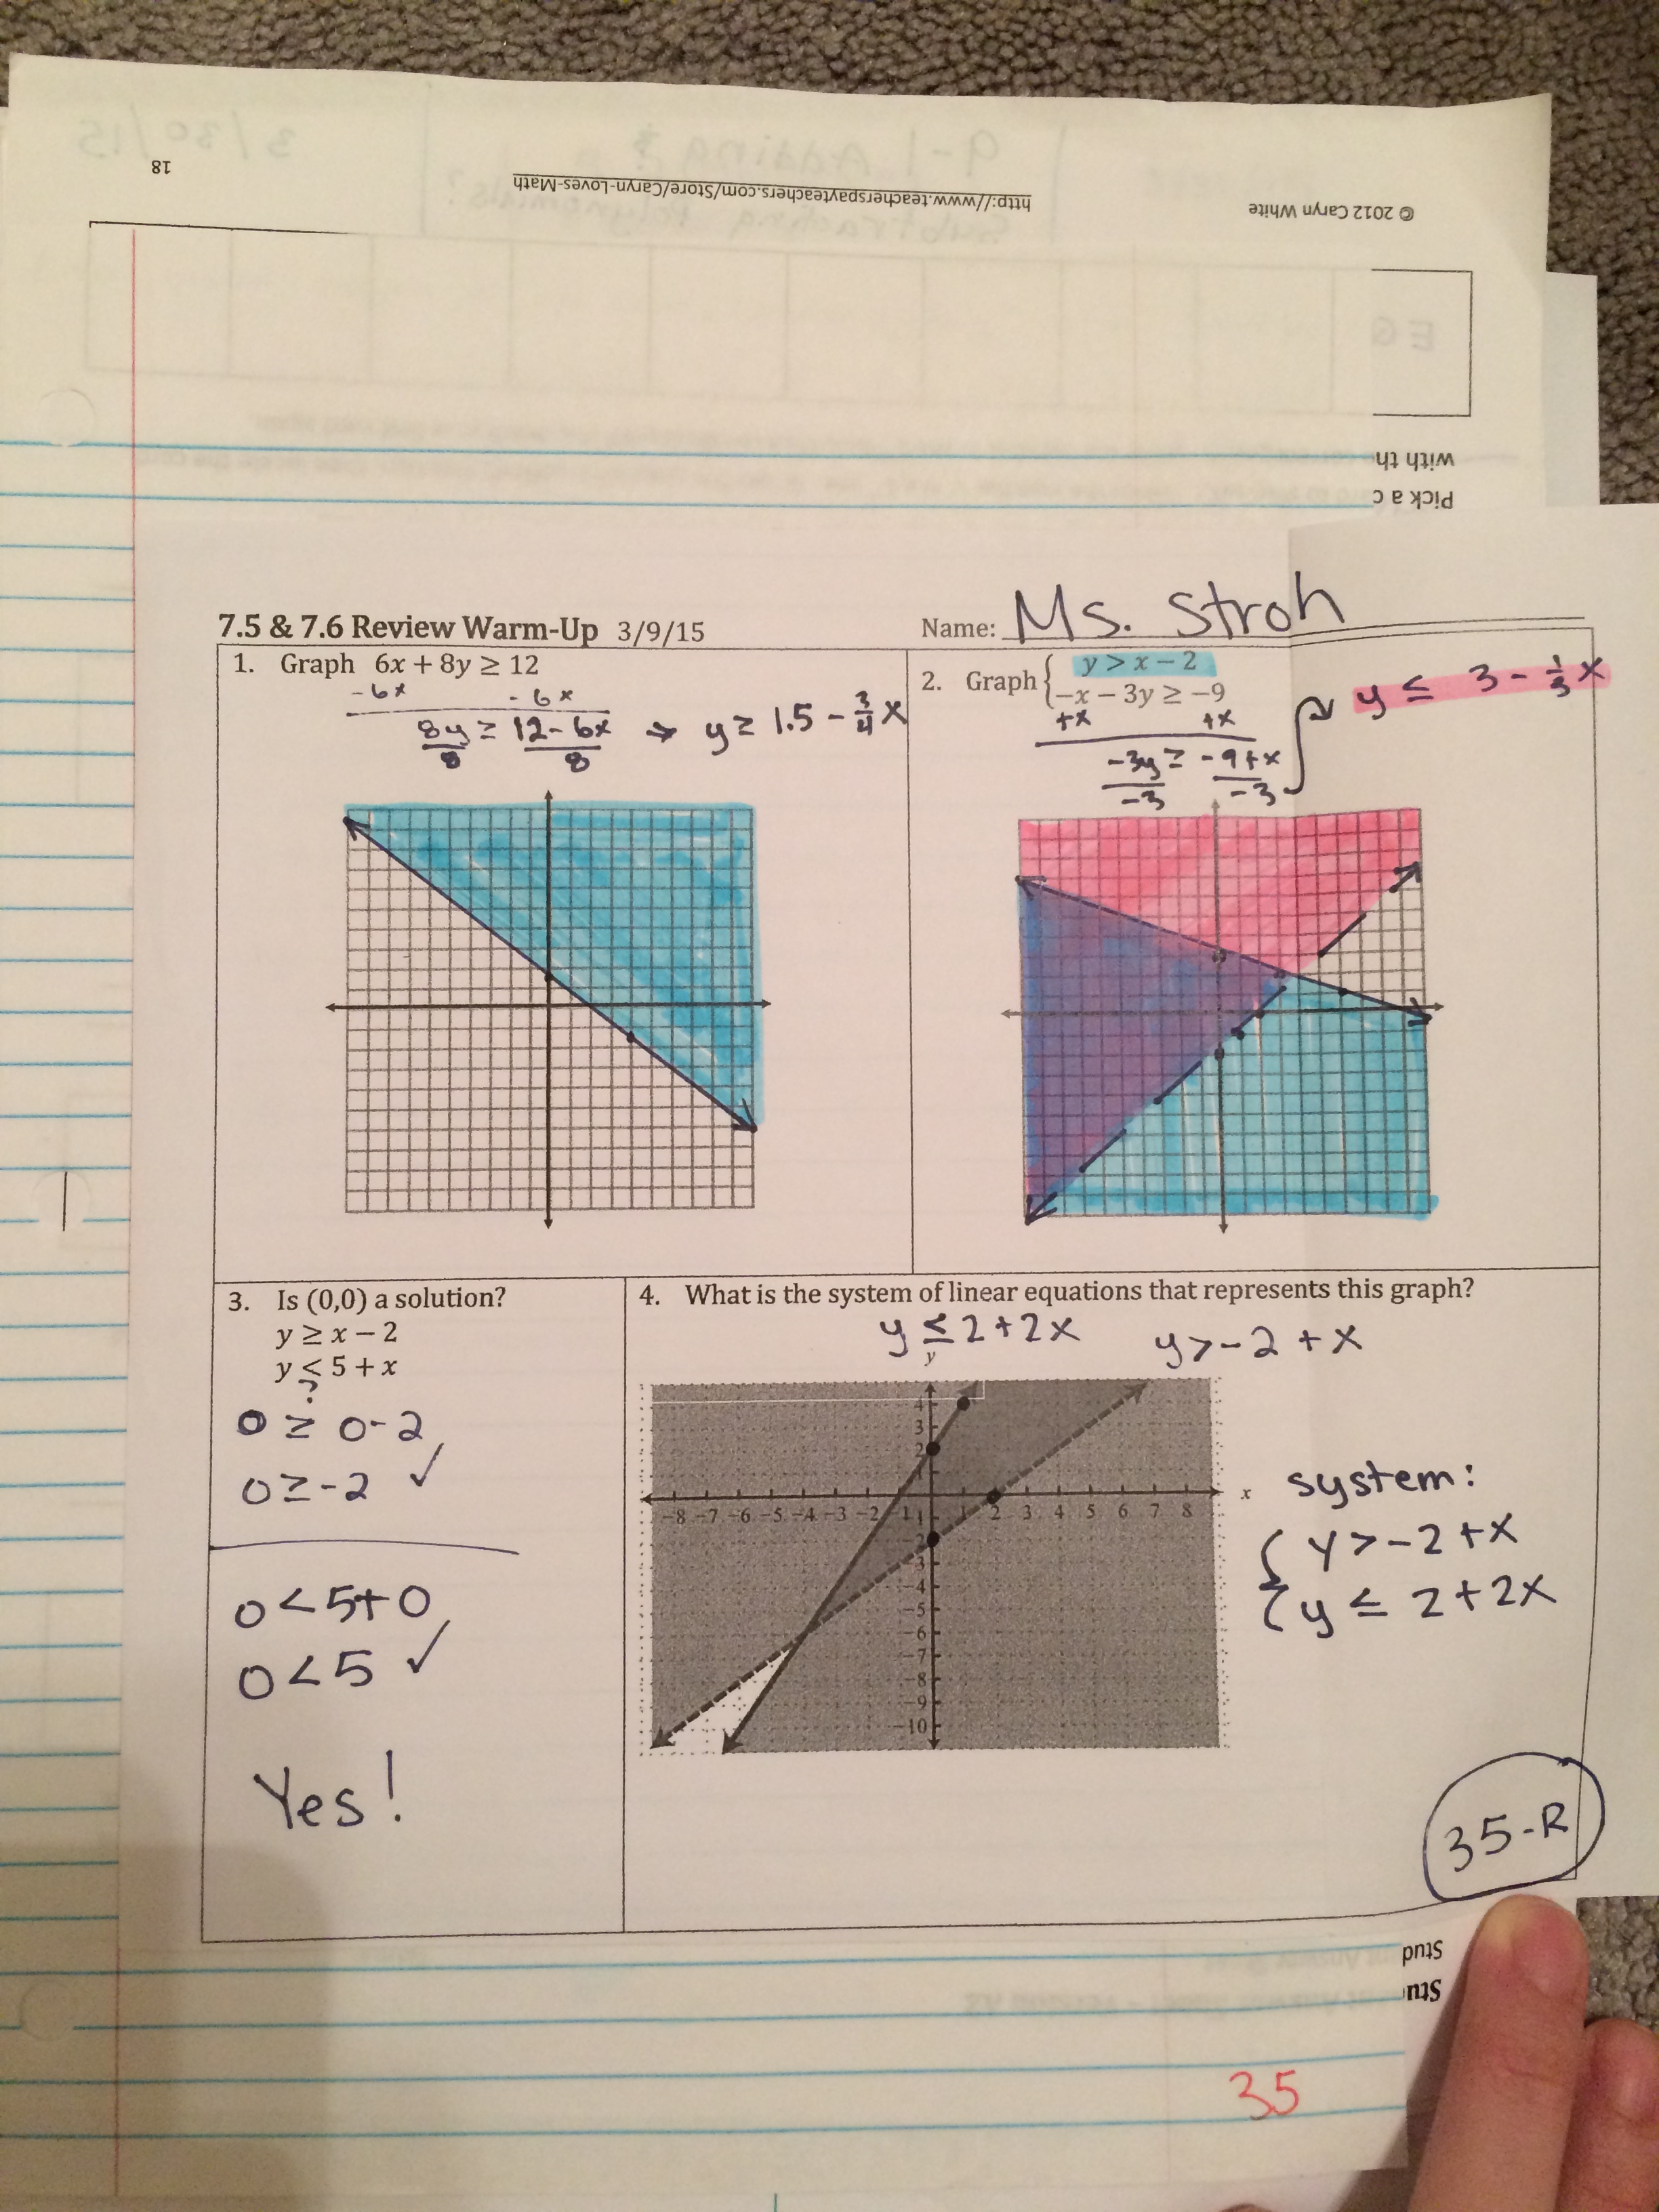 3/30/15
9-1 Adding &
Subtracting Polynomials?
18
http://www.teacherspayteachers.com/Store/Caryn-Loves-Math
© 2012 Caryn White
EQ
with th
Pick a c
7.5 & 7.6 Review Warm-Up 3/9/15
Name: Ms. Stroh
1. Graph 6x + 8y ≥ 12
-6x -6x
8y ≥ 12 - 6x → y ≥ 1.5 - 3/4 x
8 8
2. Graph { y > x - 2
-x - 3y ≥ -9
+x +x
-3y ≥ -9 + x
-3 -3
y ≤ 3 - 1/3 x
3. Is (0,0) a solution?
y ≥ x - 2
y < 5 + x
?
0 ≥ 0 - 2
0 ≥ -2 ✓
0 < 5 + 0
0 < 5 ✓
Yes!
4. What is the system of linear equations that represents this graph?
y ≤ 2 + 2x y > -2 + x
y
4
3
2
-8 -7 -6 -5 -4 -3 -2 -1 1 2 3 4 5 6 7 8 x
-2
-3
-4
-5
-6
-7
-8
-9
-10
system:
{ y > -2 + x
{ y ≤ 2 + 2x
35-R
Stud
Stu
35